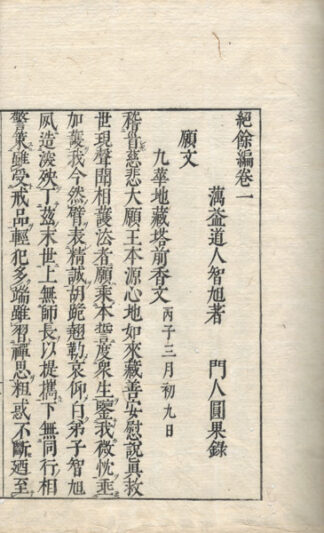 絕餘編卷一
蕅益道人智旭著　門人圓果錄
願文
九華地藏塔前香文 丙子三月初九日
稽首慈悲大願王本源心地如來藏善安慰說真救
世現聲聞相護法者願乘本誓度眾生鑒我微忱垂
加護我今然臂表精誠胡跪翹勤哀仰白弟子智旭
夙造深殃丁茲末世上無師長以提攜下無同行相
警策雖受戒品輕犯多端雖習禪思粗惑不斷迺至